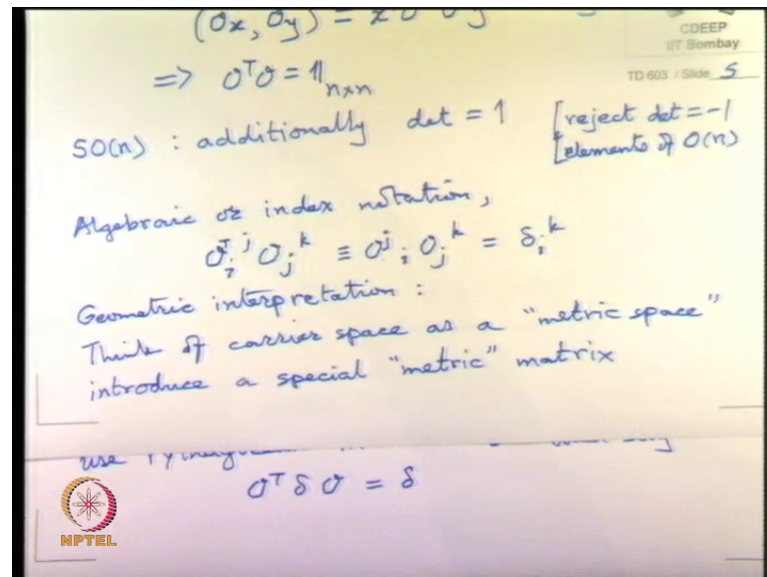 (Ox, Oy) = x
CDEEP
IIT Bombay
=> OᵀO = 𝟙ₙₓₙ
TD 603 / Slide 5
SO(n) : additionally det = 1 [reject det = -1
[elements of O(n)
Algebraic or index notation,
Oᵀᵢʲ Oⱼᵏ ≡ Oʲᵢ Oⱼᵏ = δᵢᵏ
Geometric interpretation :
Think of carrier space as a "metric space"
introduce a special "metric" matrix
use
Oᵀ δ O = δ
NPTEL